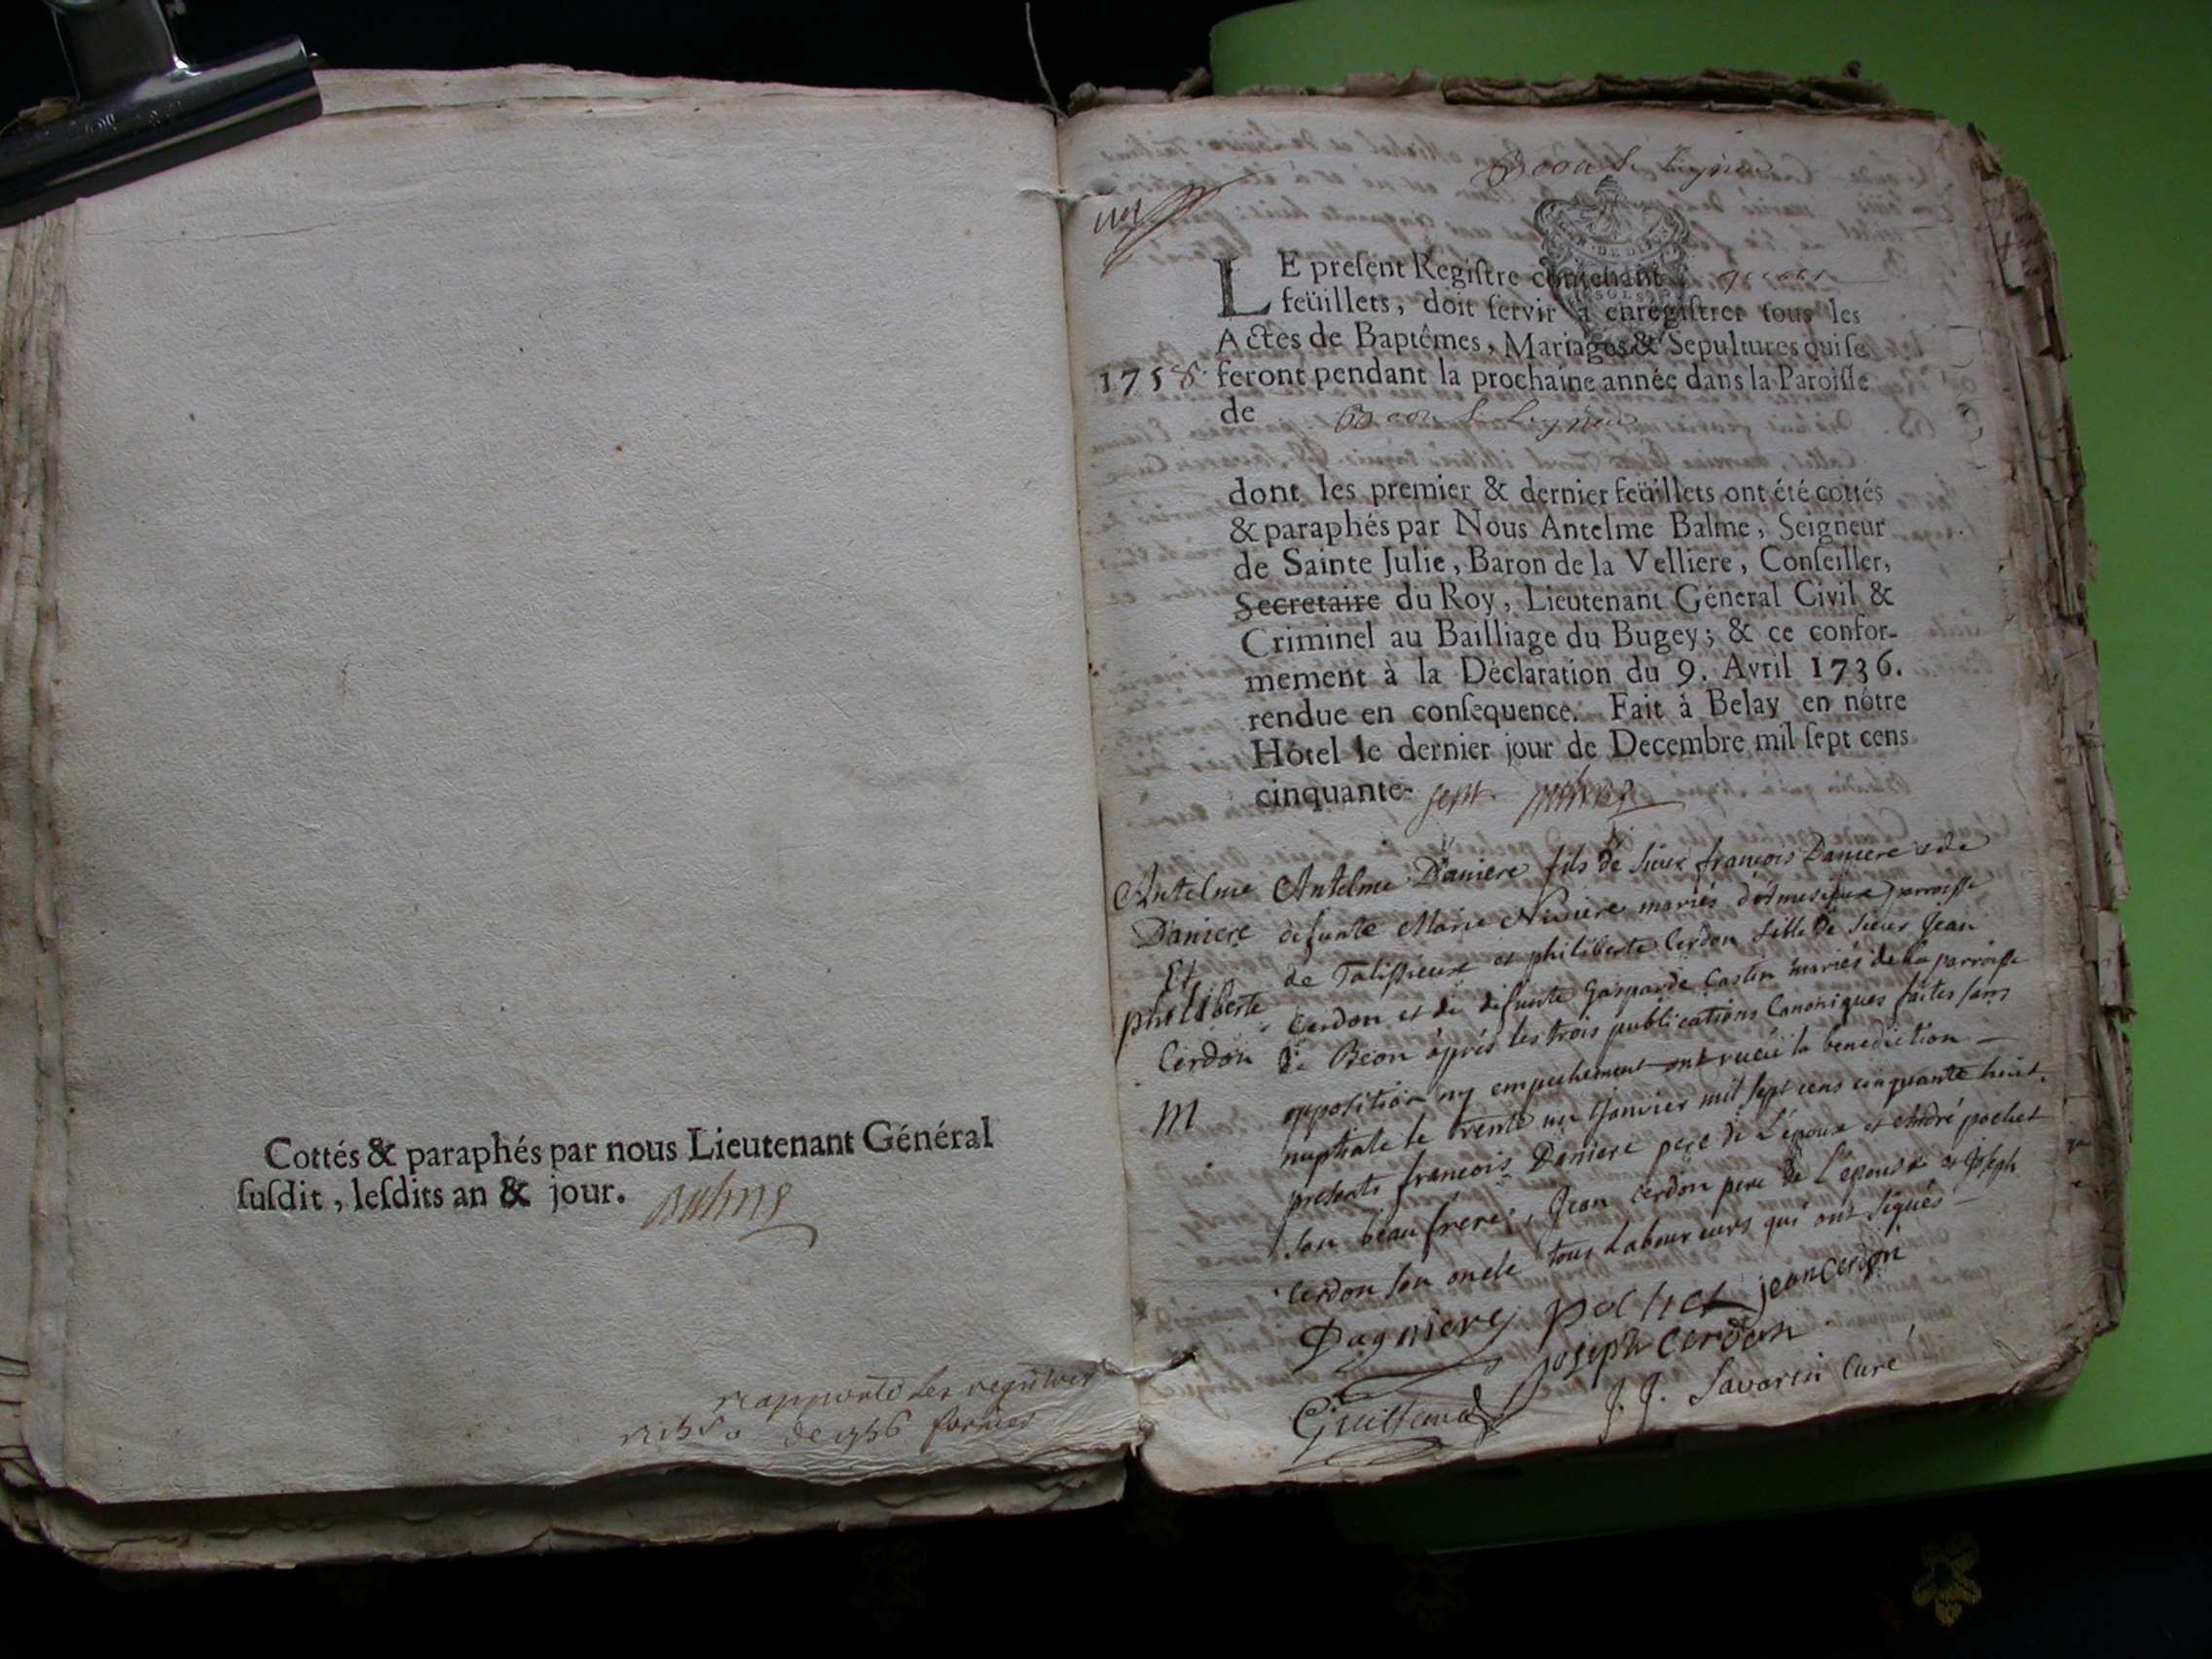 Cottés & paraphés par nous Lieutenant Général
ſuſdit, leſdits an & jour. Balme
rapporté les registres
de 1756
Beon L Lyrieu
LE preſent Regiſtre contenant
feüillets, doit ſervir à enregiſtrer tous les
Actes de Baptêmes, Mariages & Sepultures qui ſe
1758. feront pendant la prochaine année dans la Paroiſſe
de Beon L Lyrieu
dont les premier & dernier feüillets ont été cottés
& paraphés par Nous Antelme Balme, Seigneur
de Sainte Julie, Baron de la Velliere, Conſeiller,
Secretaire du Roy, Lieutenant Géneral Civil &
Criminel au Bailliage du Bugey; & ce confor-
mement à la Déclaration du 9. Avril 1736.
rendue en conſequence. Fait à Belay en nôtre
Hôtel le dernier jour de Decembre mil ſept cens
cinquante-sept. Balme
Antelme Antelme Daniere fils de sieur françois Daniere et de
Daniere defunte Marie Niviere mariés parroisse
Et de Talissieux et philiberte Cerdon fille de sieur Jean
philiberte Cerdon et de defunte Gasparde Castin mariés de la parroisse
Cerdon de Beon aprés les trois publications Canoniques faites sans
opposition ny empechement ont reçeu la benediction
M nuptiale le trente un Janvier mil sept cens cinquante huit.
presents francois Daniere pere de L'epoux et André pochet
son beau frere, Jean Cerdon pere de L'epouse et Joseph
Cerdon son oncle tous Laboureurs qui ont signés
Dagniere pochet jean cerdon
Joseph Cerdon
Guillemad J. J. Savarin Curé